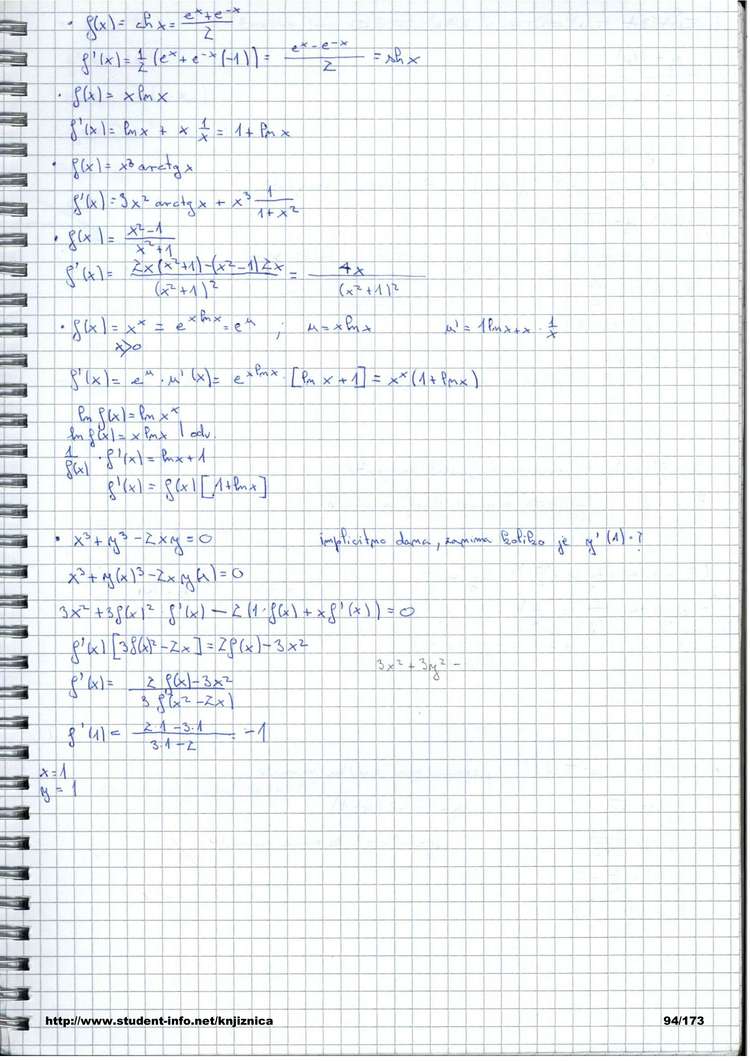 • f(x) = ch x = (e^x + e^-x)/2
f'(x) = 1/2 (e^x + e^-x (-1)) = (e^x - e^-x)/2 = sh x
• f(x) = x ln x
f'(x) = ln x + x 1/x = 1 + ln x
• f(x) = x³ arctg x
f'(x) = 3x² arctg x + x³ 1/(1+x²)
• f(x) = (x²-1)/(x²+1)
f'(x) = (2x(x²+1) - (x²-1)2x)/(x²+1)² = 4x/(x²+1)²
• f(x) = x^x = e^(x ln x) = e^u ; u = x ln x u' = 1 ln x + x · 1/x
x>0
f'(x) = e^u · u'(x) = e^(x ln x) · [ln x + 1] = x^x (1 + ln x)
ln f(x) = ln x^x
ln f(x) = x ln x | odv.
1/f(x) · f'(x) = ln x + 1
f'(x) = f(x) [1 + ln x]
• x³ + y³ - 2xy = 0 implicitno dana, zanima koliko je y'(1) = ?
x³ + y(x)³ - 2x y(x) = 0
3x² + 3f(x)² f'(x) - 2(1·f(x) + x f'(x)) = 0
f'(x) [3f(x)² - 2x] = 2f(x) - 3x²
3x² + 3y² -
f'(x) = (2 f(x) - 3x²)/(3 f(x² - 2x)
f'(1) = (2·1 - 3·1)/(3·1 - 2) = -1
x = 1
y = 1
http://www.student-info.net/knjiznica 94/173